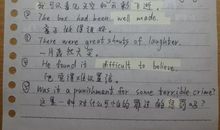 ② The box had been well made.
盒子做得很好.
③ There were great shouts of laughter.
一片哄然大笑.
④ He found it difficult to believe.
他觉得难以置信.
⑤ Was it a punishment for some terrible crime?
这是一种对什么可怕的罪过的惩罚吗?